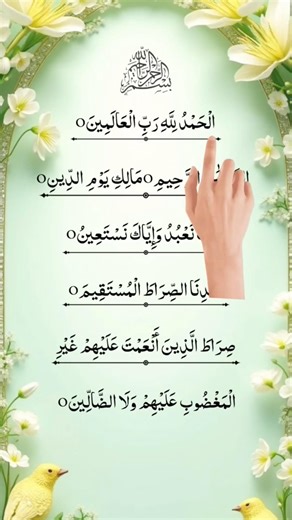 بِسْمِ اللَّهِ الرَّحْمَٰنِ الرَّحِيمِ
الْحَمْدُ لِلَّهِ رَبِّ الْعَالَمِينَ
مَالِكِ يَوْمِ الدِّينِ
نَعْبُدُ وَإِيَّاكَ نَسْتَعِينُ
الصِّرَاطَ الْمُسْتَقِيمَ
صِرَاطَ الَّذِينَ أَنْعَمْتَ عَلَيْهِمْ غَيْرِ
الْمَغْضُوبِ عَلَيْهِمْ وَلَا الضَّالِّينَ